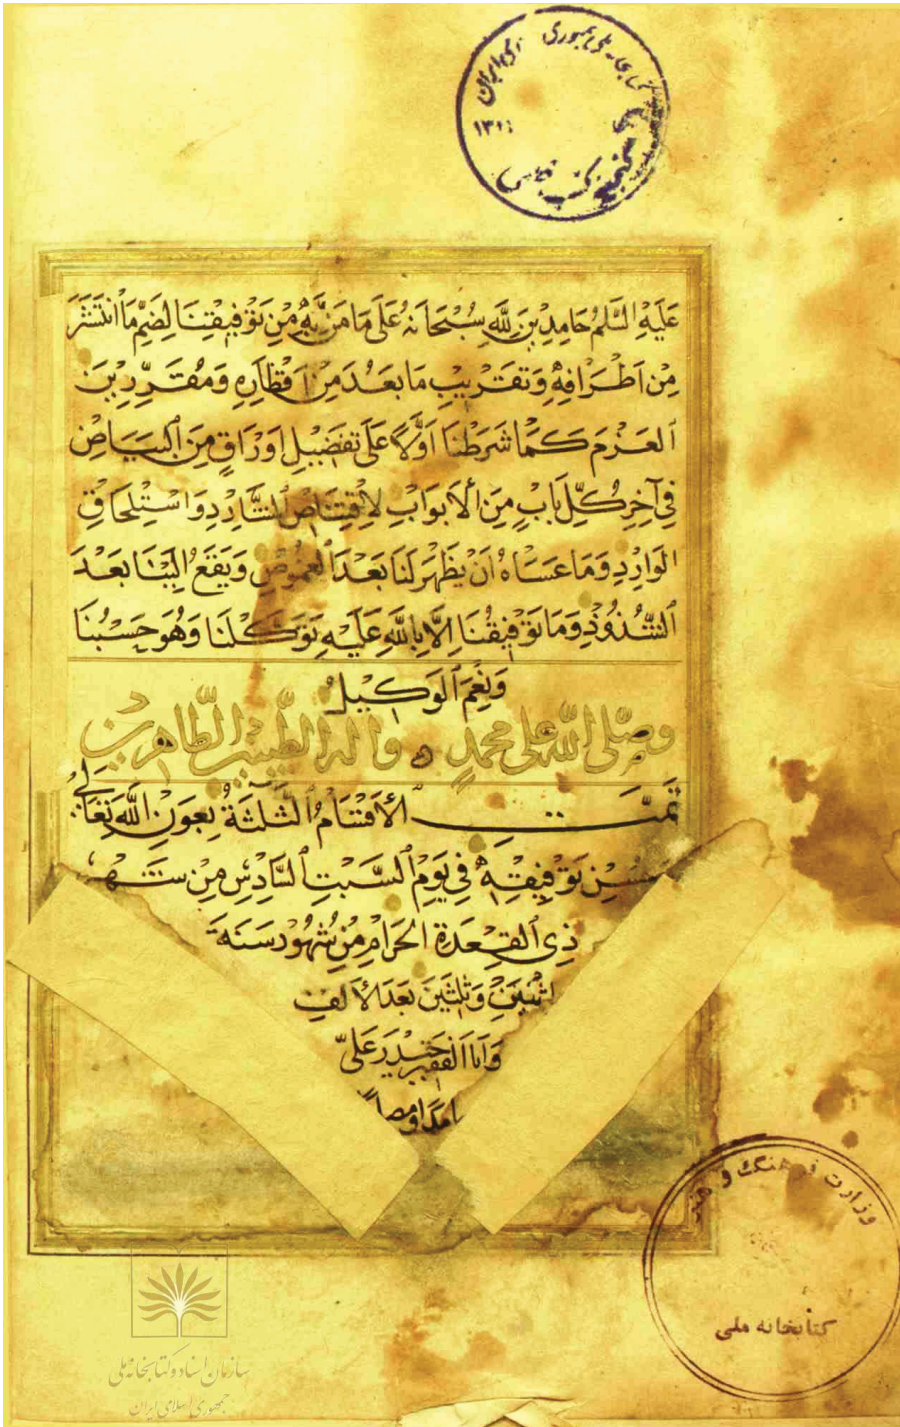 عَلَيْهِ السَّلَمُ حَامِدِينَ لِلَّهِ سُبْحَانَهُ عَلَى مَا مَنَّ بِهِ مِنْ تَوْفِيقِنَا لِضَمِّ مَا انْتَشَرَ
مِنْ اَطْرَافِهِ وَتَقْرِيبِ مَا بَعُدَ مِنْ اَقْطَارِهِ وَمُقَرِّرِينَ
الْعَزْمَ كَمَا شَرَطْنَا اَوَّلًا عَلَى تَفْضِيلِ اَوْرَاقٍ مِنَ الْبَيَاضِ
فِي آخِرِ كُلِّ بَابٍ مِنَ الْأَبْوَابِ لِاقْتِنَاصِ الشَّارِدِ وَاسْتِلْحَاقِ
الْوَارِدِ وَمَا عَسَاهُ اَنْ يَظْهَرَ لَنَا بَعْدَ الْغُمُوضِ وَيَقَعَ اِلَيْنَا بَعْدَ
الشُّذُوذِ وَمَا تَوْفِيقُنَا اِلَّا بِاللَّهِ عَلَيْهِ تَوَكَّلْنَا وَهُوَ حَسْبُنَا
وَنِعْمَ الْوَكِيلُ
وصلى الله على محمد واله الطيبين الطاهرين
تَمَّتِ الْأَقْسَامُ الثَّلَثَةُ بِعَوْنِ اللَّهِ تَعَالَى
تَوْفِيقِهِ فِي يَوْمِ السَّبْتِ السَّادِسِ مِنْ شَهْرِ
ذِي الْقِعْدَةِ الْحَرَامِ مِنْ شُهُورِ سَنَةَ
اثْنَيْنِ وَثَلَثِينَ بَعْدَ الْأَلْفِ
وَاَنَا الْفَقِيرُ حَيْدَر عَلِيّ
وزارت فرهنگ و هنر
کتابخانه ملی
سازمان اسناد و کتابخانه ملی
جمهوری اسلامی ایران